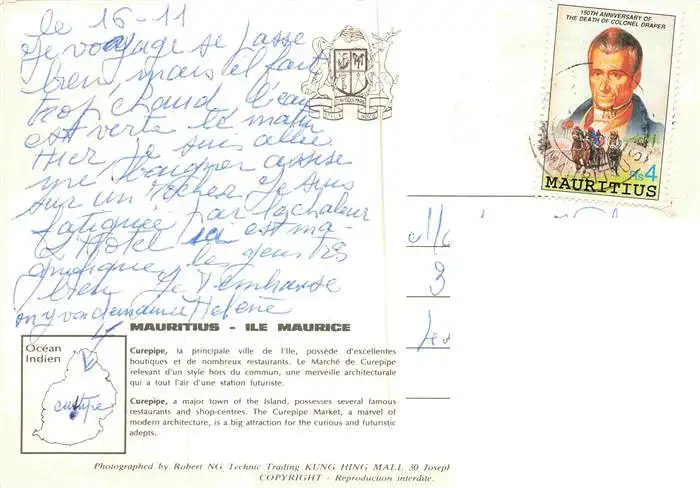 le 16-11
le voyage se passe
bien, mais il fait
trop chaud l'eau
est verte le matin
Hier je suis allée
me baigner assise
sur un rocher je suis
fatiguée par la chaleur
L'Hotel est ma-
gnifique, les gens très
bien Je t'embrasse
on y va demain Helene
150TH ANNIVERSARY OF
THE DEATH OF COLONEL DRAPER
Rs 4
MAURITIUS
3
MAURITIUS - ILE MAURICE
Océan
Indien
curepipe
Curepipe, la principale ville de l'Ile, possède d'excellentes
boutiques et de nombreux restaurants. Le Marché de Curepipe
relevant d'un style hors du commun, une merveille architecturale
qui a tout l'air d'une station futuriste.
Curepipe, a major town of the Island, possesses several famous
restaurants and shop-centres. The Curepipe Market, a marvel of
modern architecture, is a big attraction for the curious and futuristic
adepts.
Photographed by Robert NG Technic Trading KUNG HING MALL 30 Joseph
COPYRIGHT - Reproduction interdite.